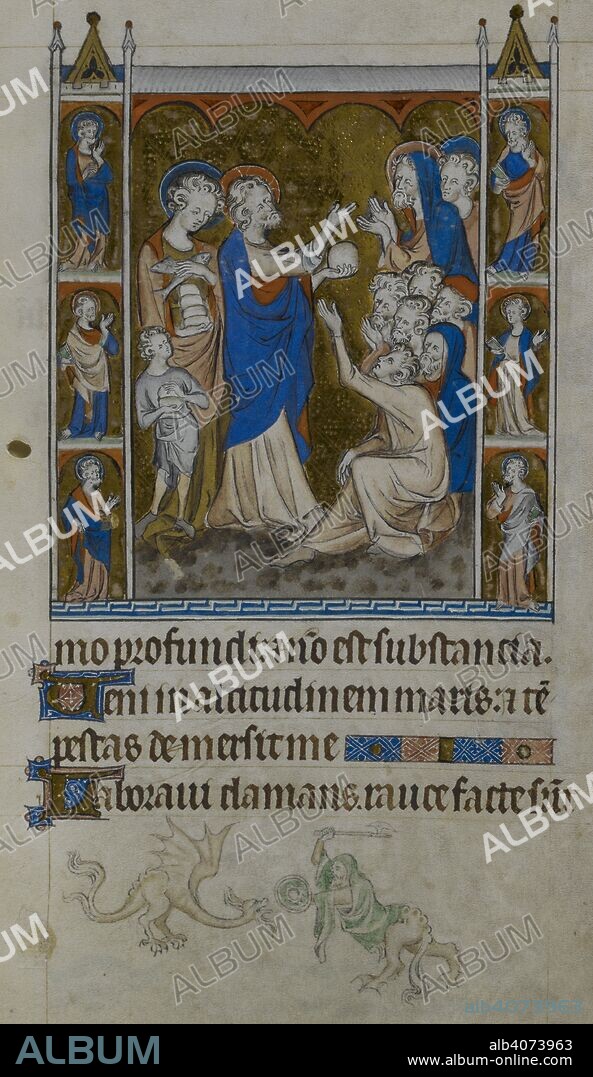 mo profundi: ⁊ nō est substancia.
Veni in altitudinem maris: ⁊ tē
pestas demersit me
Laboraui clamans. rauce facte sūt
alb4073963
ALBUM
alb4073963
www.album-online.com